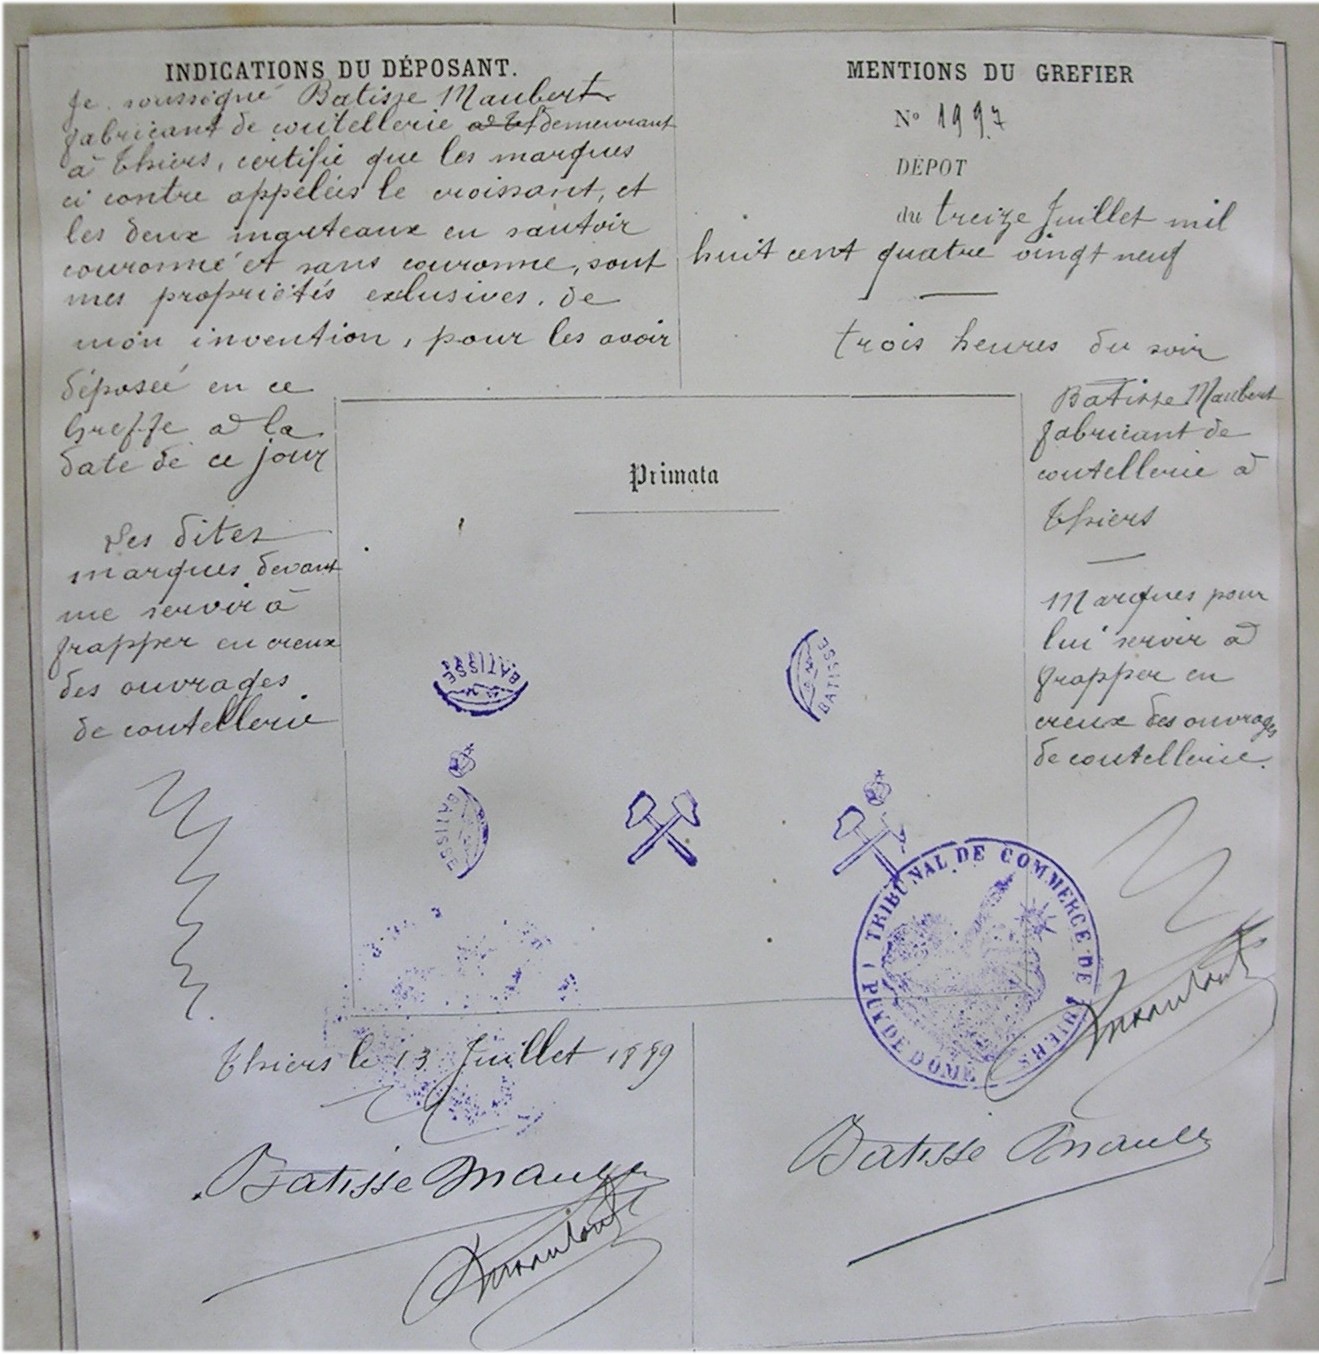 INDICATIONS DU DÉPOSANT.
Je soussigné Batisse Maubert
fabricant de coutellerie demeurant
à Thiers, certifie que les marques
ci contre appelées le croissant, et
les deux marteaux en sautoir
couronné et sans couronne, sont
mes propriétés exclusives. de
mon invention, pour les avoir
déposée en ce
Greffe à la
date de ce jour
Les dites
marques devant
me servir à
frapper en creux
des ouvrages
de coutellerie
MENTIONS DU GREFIER
No 1997
DÉPOT
du treize Juillet mil
huit cent quatre vingt neuf
trois heures du soir
Batisse Maubert
fabricant de
coutellerie à
Thiers
Marques pour
lui servir à
frapper en
creux des ouvrages
de coutellerie.
Primata
BATISSE
BATISSE
BATISSE
TRIBUNAL DE COMMERCE DE THIERS
PUY DE DOME
Thiers le 13 Juillet 1889
Batisse
Batisse